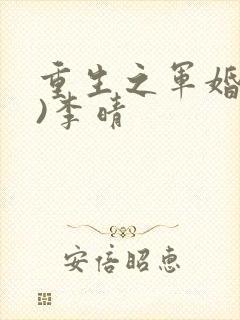 重生之军婚
)李晴
安倍昭恵